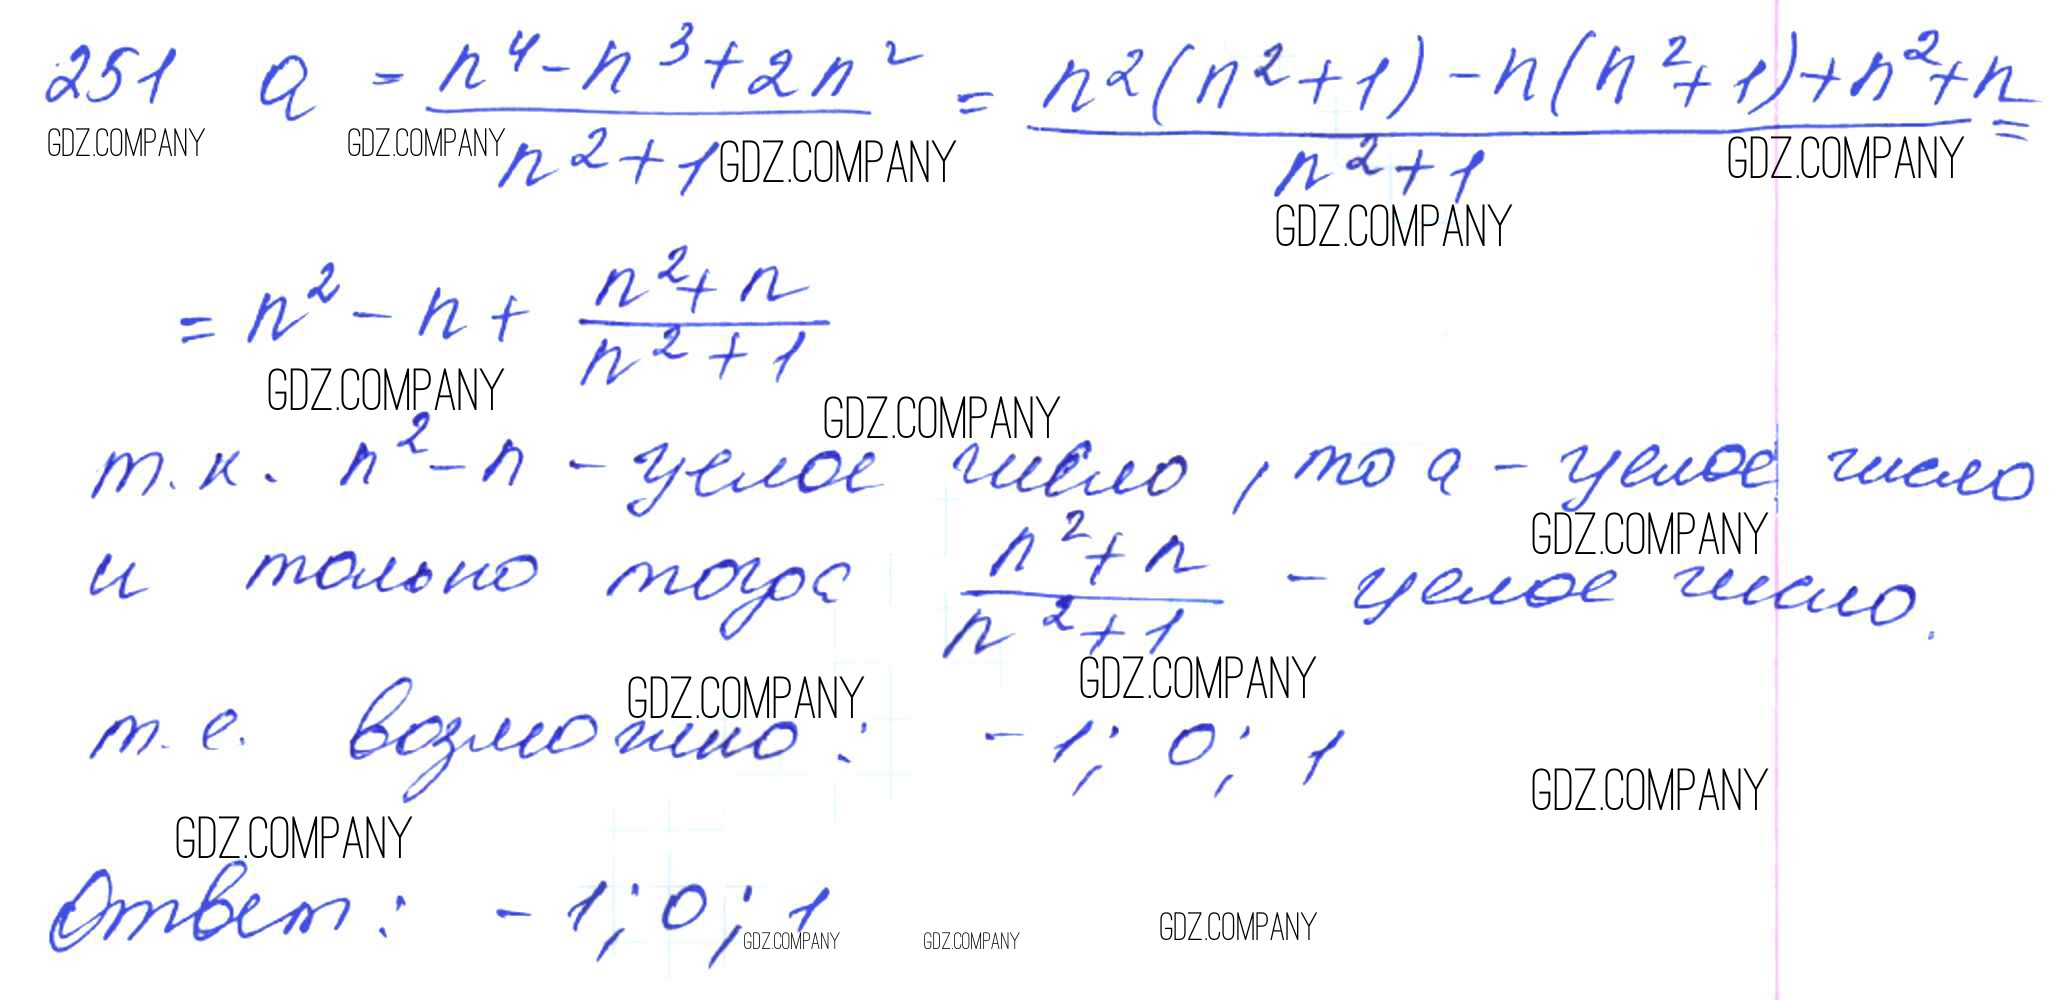 251 a = (n⁴ - n³ + 2n²)/(n² + 1) = (n²(n² + 1) - n(n² + 1) + n² + n)/(n² + 1) =
GDZ.COMPANY GDZ.COMPANY GDZ.COMPANY GDZ.COMPANY
GDZ.COMPANY
= n² - n + (n² + n)/(n² + 1)
GDZ.COMPANY GDZ.COMPANY
т.к. n² - n - целое число, то a - целое число
GDZ.COMPANY
и только тогда (n² + n)/(n² + 1) - целое число.
GDZ.COMPANY GDZ.COMPANY
т.е. возможно: -1; 0; 1
GDZ.COMPANY
GDZ.COMPANY
Ответ: -1; 0; 1
GDZ.COMPANY GDZ.COMPANY GDZ.COMPANY